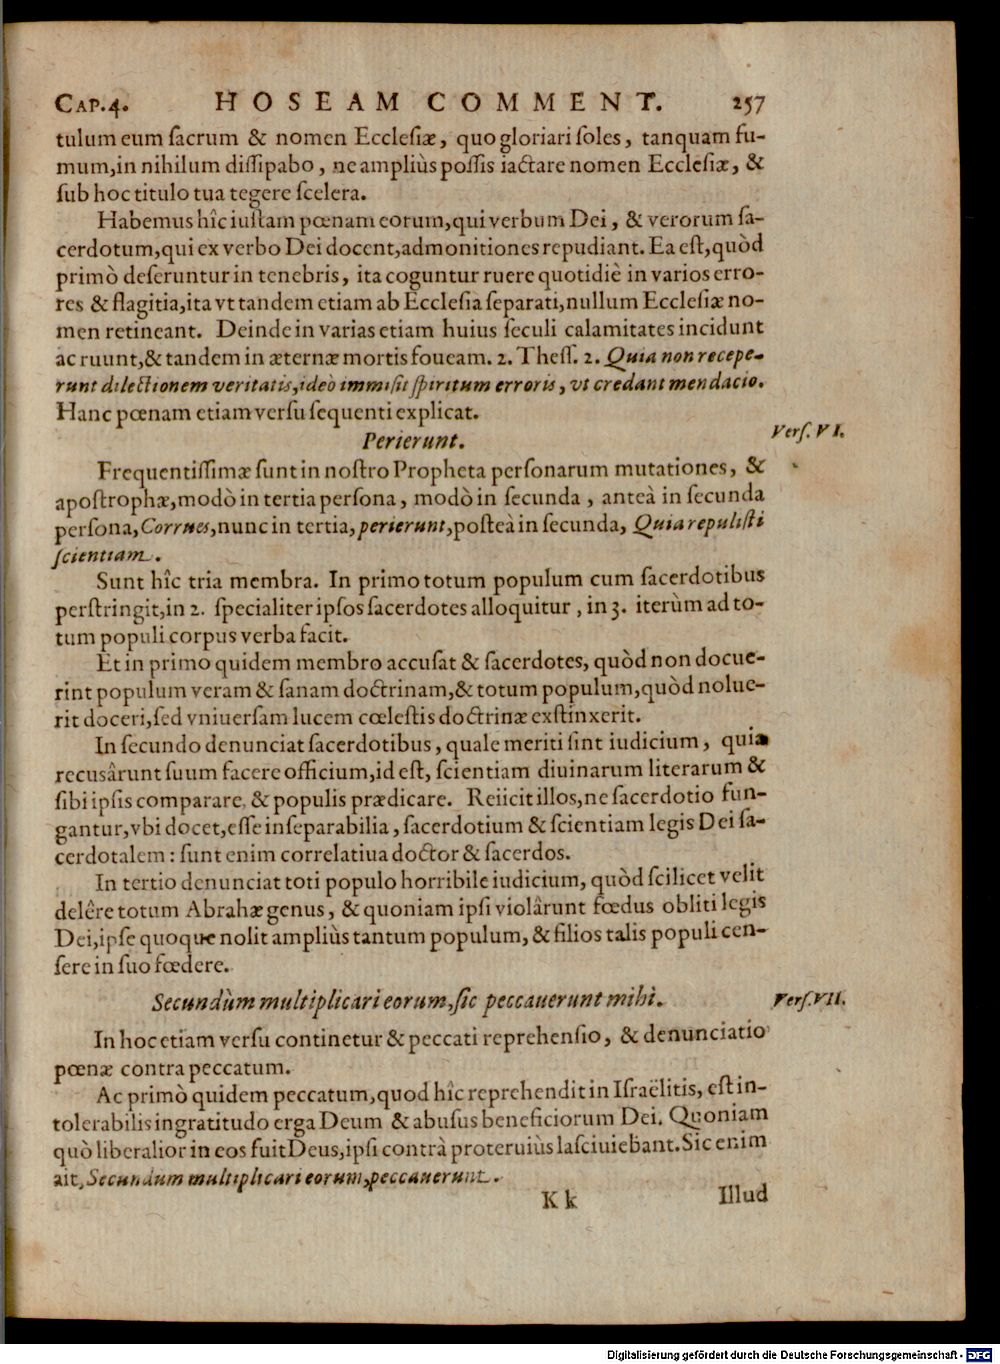 CAP. 4. HOSEAM COMMENT. 257
tulum eum ſacrum & nomen Eccleſiæ, quo gloriari ſoles, tanquam fu-
mum, in nihilum diſſipabo, ne ampliùs poſſis iactare nomen Eccleſiæ, &
ſub hoc titulo tua tegere ſcelera.
Habemus hîc iuſtam pœnam eorum, qui verbum Dei, & verorum ſa-
cerdotum, qui ex verbo Dei docent, admonitiones repudiant. Ea eſt, quòd
primò deſeruntur in tenebris, ita coguntur ruere quotidiè in varios erro-
res & flagitia, ita vt tandem etiam ab Eccleſia ſeparati, nullum Eccleſiæ no-
men retineant. Deinde in varias etiam huius ſeculi calamitates incidunt
ac ruunt, & tandem in æternæ mortis foueam. 2. Theſſ. 2. Quia non recepe-
runt dilectionem veritatis, ideò immiſit ſpiritum erroris, vt credant mendacio.
Hanc pœnam etiam verſu ſequenti explicat.
Perierunt.
Verſ. VI.
Frequentiſſimæ ſunt in noſtro Propheta perſonarum mutationes, &
apoſtrophæ, modò in tertia perſona, modò in ſecunda, anteà in ſecunda
perſona, Corrues, nunc in tertia, perierunt, poſteà in ſecunda, Quia repuliſti
ſcientiam.
Sunt hîc tria membra. In primo totum populum cum ſacerdotibus
perſtringit, in 2. ſpecialiter ipſos ſacerdotes alloquitur, in 3. iterùm ad to-
tum populi corpus verba facit.
Et in primo quidem membro accuſat & ſacerdotes, quòd non docue-
rint populum veram & ſanam doctrinam, & totum populum, quòd nolue-
rit doceri, ſed vniuerſam lucem cœleſtis doctrinæ exſtinxerit.
In ſecundo denunciat ſacerdotibus, quale meriti ſint iudicium, quia
recusârunt ſuum facere officium, id eſt, ſcientiam diuinarum literarum &
ſibi ipſis comparare, & populis prædicare. Reiicit illos, ne ſacerdotio fun-
gantur, vbi docet, eſſe inſeparabilia, ſacerdotium & ſcientiam legis Dei ſa-
cerdotalem: ſunt enim correlatiua doctor & ſacerdos.
In tertio denunciat toti populo horribile iudicium, quòd ſcilicet velit
delêre totum Abrahæ genus, & quoniam ipſi violârunt fœdus obliti legis
Dei, ipſe quoque nolit ampliùs tantum populum, & filios talis populi cen-
ſere in ſuo fœdere.
Secundùm multiplicari eorum, ſic peccauerunt mihi.
Verſ. VII.
In hoc etiam verſu continetur & peccati reprehenſio, & denunciatio
pœnæ contra peccatum.
Ac primò quidem peccatum, quod hîc reprehendit in Iſraëlitis, eſt in-
tolerabilis ingratitudo erga Deum & abuſus beneficiorum Dei. Quoniam
quò liberalior in eos fuit Deus, ipſi contrà proteruiùs laſciuiebant. Sic enim
ait, Secundum multiplicari eorum, peccauerunt.
K k Illud
Digitalisierung gefördert durch die Deutsche Forschungsgemeinschaft - DFG